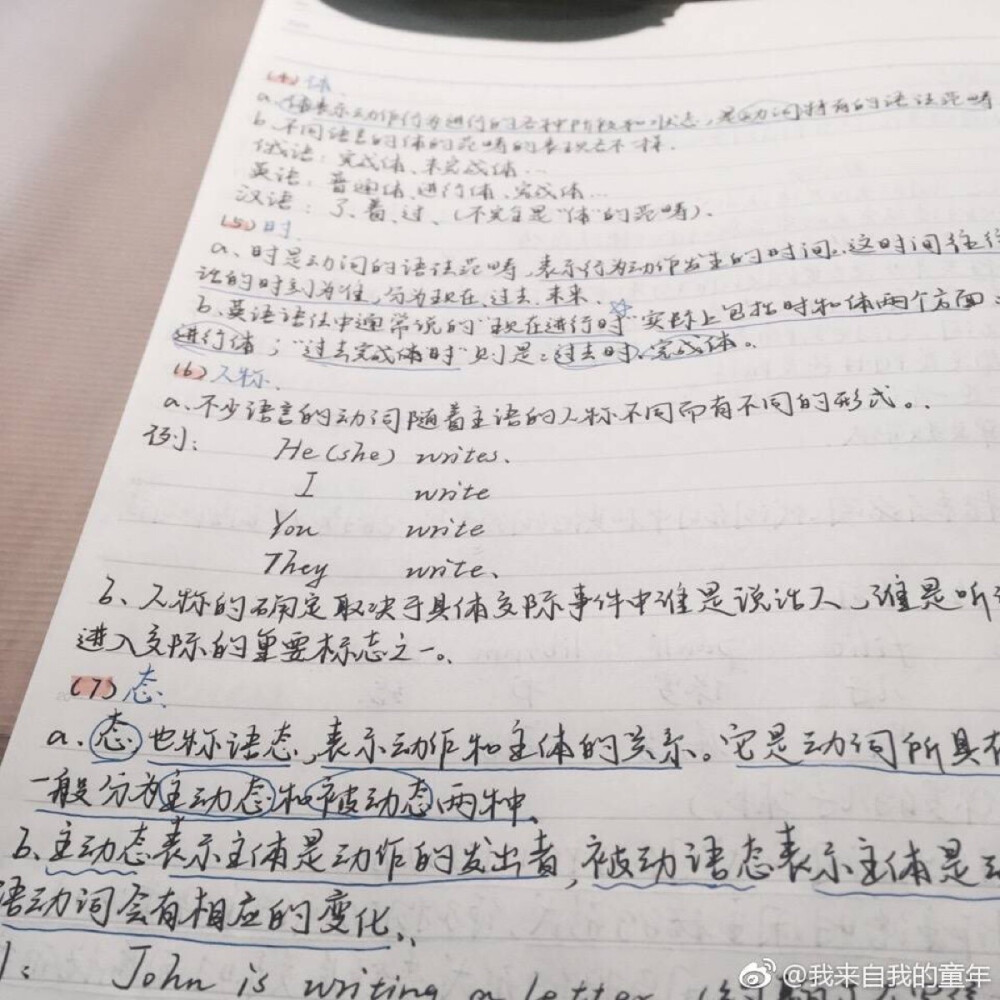 (4) 体.
a. 体表示动作行为进行的各种阶段和状态,是动词特有的语法范畴
b. 不同语言的体的范畴的表现也不一样.
俄语:完成体、未完成体…
英语:普通体、进行体、完成体…
汉语:了、着、过、(不完全是"体"的范畴).
(5) 时.
a、时是动词的语法范畴,表示行为动作发生的时间.这时间往往
话的时刻为准,分为现在、过去、未来.
b、英语语法中通常说的"现在进行时"实际上包括时和体两个方面
进行体;"过去完成体时"则是:过去时、完成体。
(6) 人称.
a、不少语言的动词随着主语的人称不同而有不同的形式。
例: He (she) writes.
I write
You write
They write、
b、人称的确定取决于具体交际事件中谁是说话人,谁是听
进入交际的重要标志之一。
(7) 态.
a. 态 也称语态,表示动作和主体的关系。它是动词所具
一般分为主动态和被动态两种.
b、主动态表示主体是动作的发出者,被动语态表示主体是
语动词会有相应的变化.
John is writing a letter.
@我来自我的童年